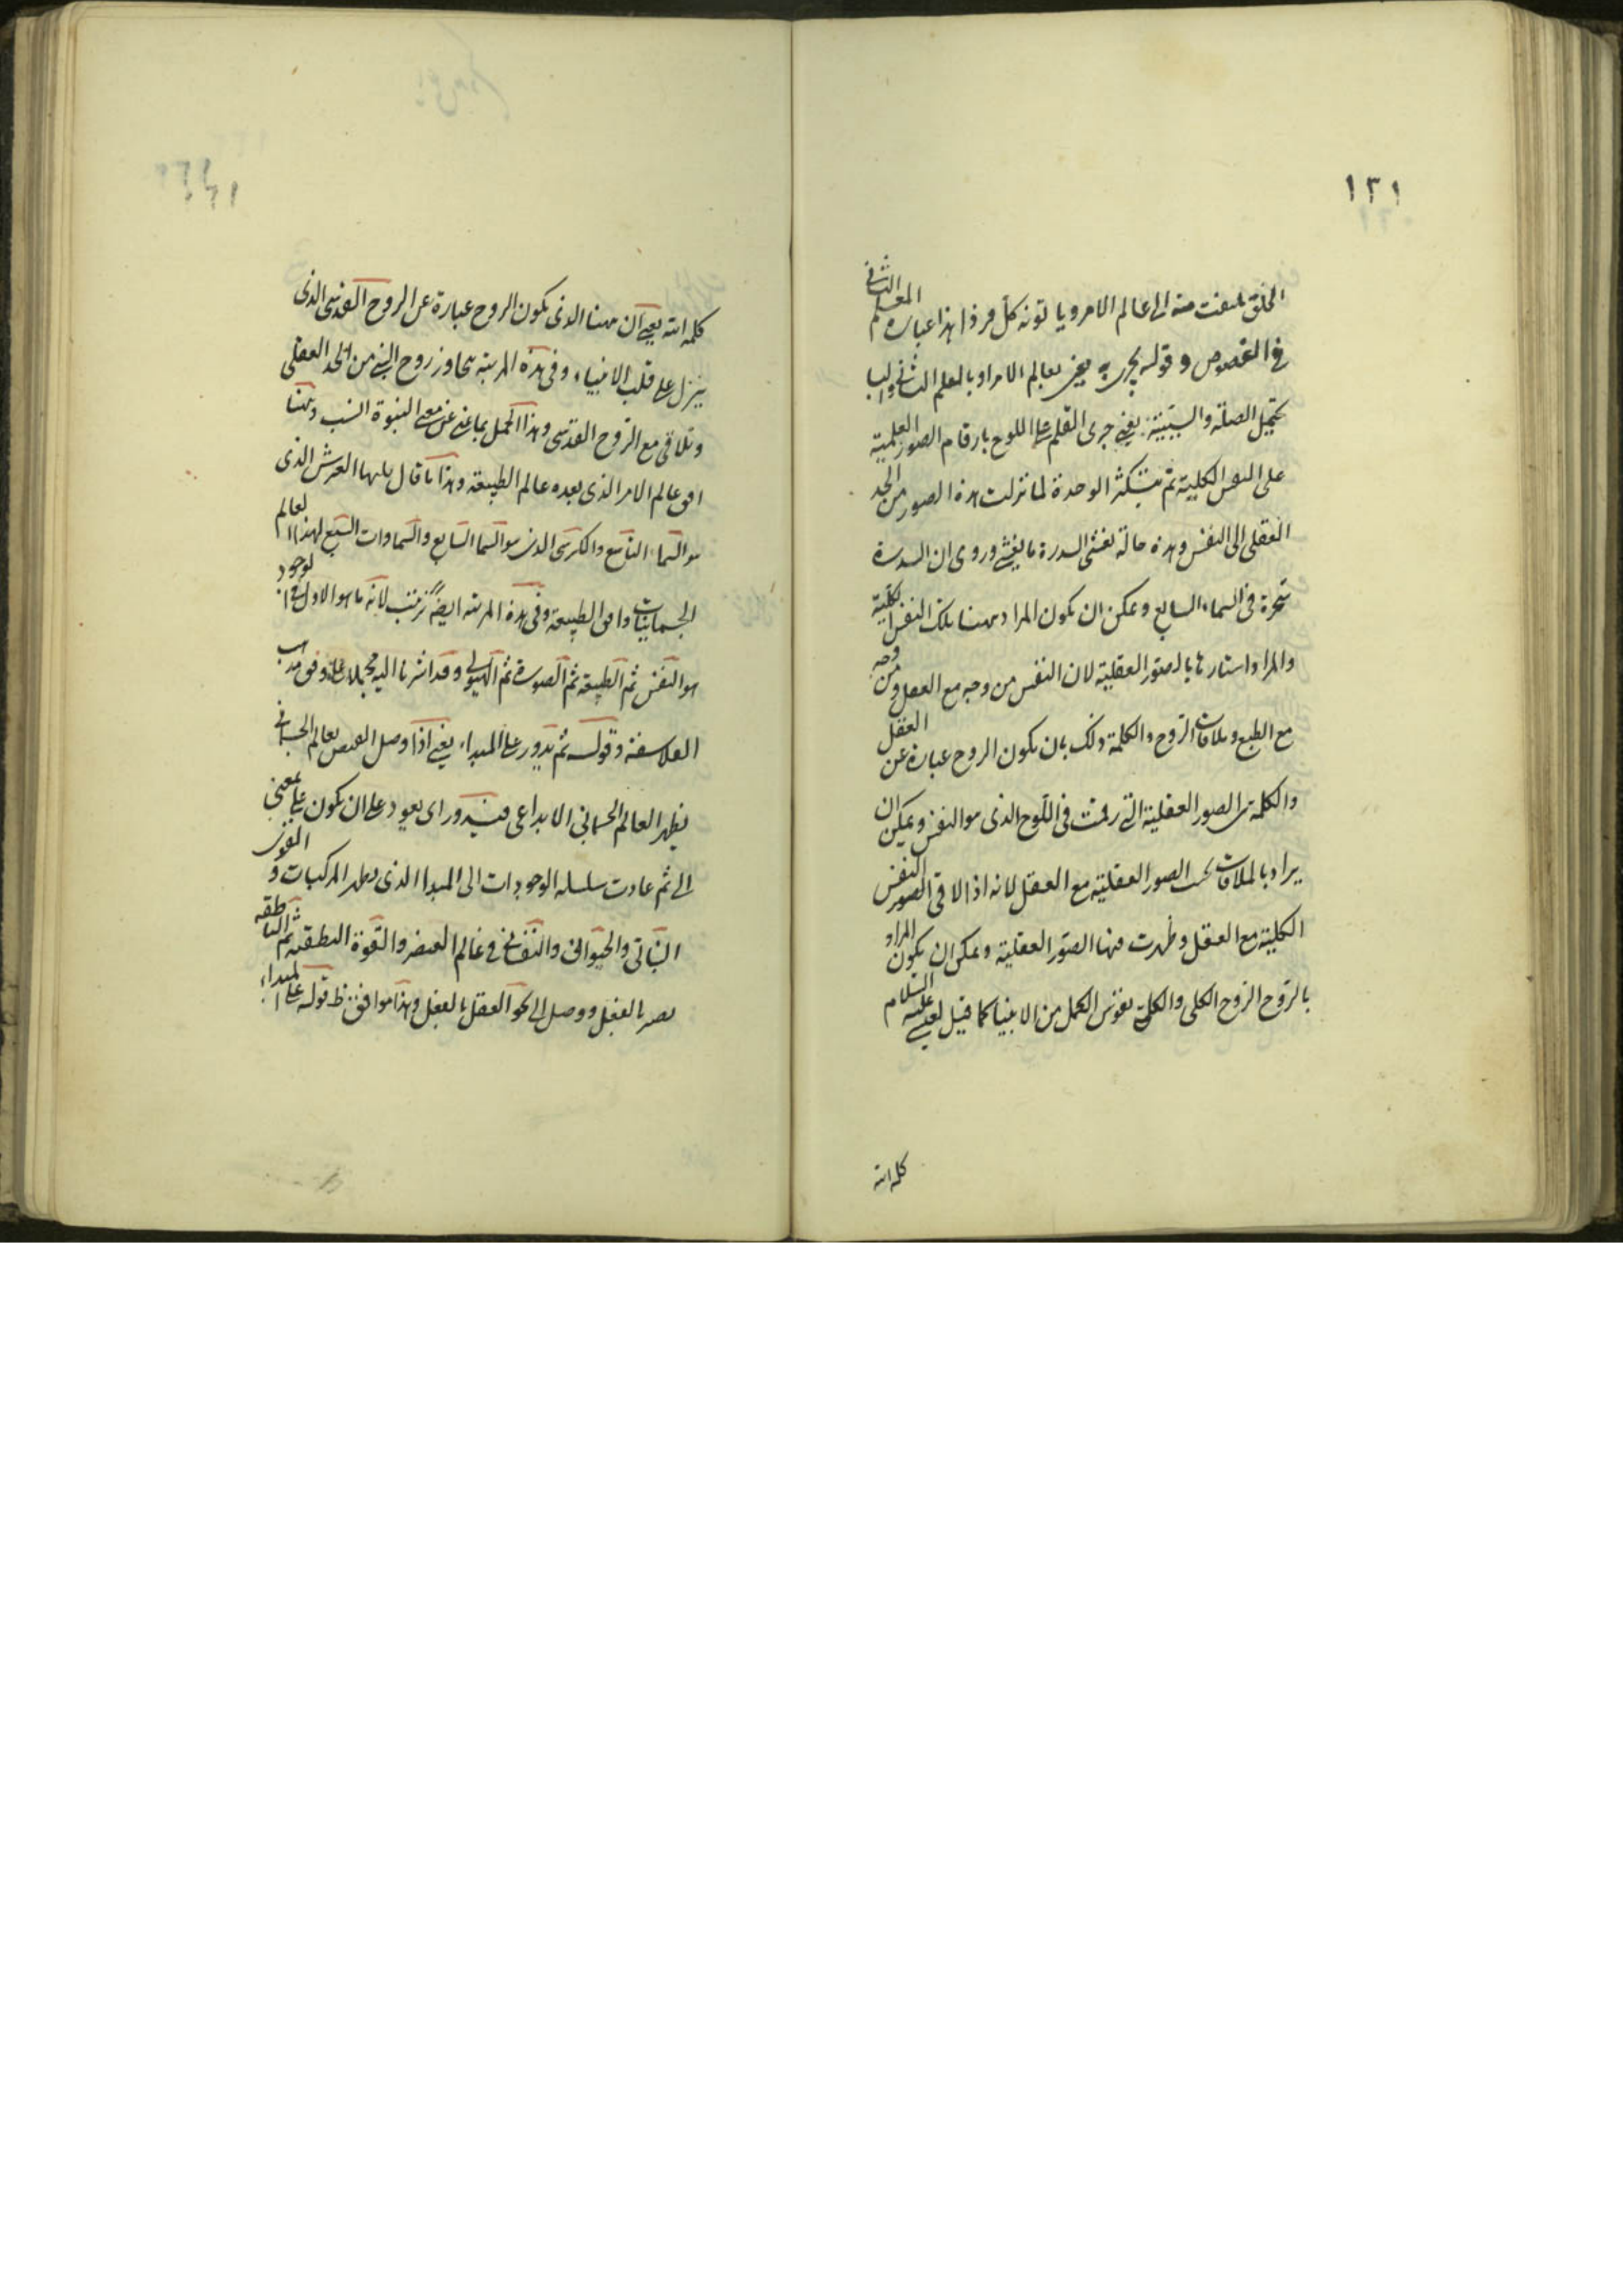 ١٢١
الخلق يلتفت منه الى عالم الامر وياتونه كل فردا هذا عبارة المعلم الثانى
فى الفصوص وقوله يجرى به يعنى بعالم الامر او بالعلم الثانى والبا
يحتمل الصلة والسببية يعنى جرى القلم على اللوح بارقام الصور العلمية
على النفس الكلية ثم يتكثر الوحدة لما نزلت هذه الصور من الحد
العقلى الى النفس وهذه حالة تغشى السدرة ما يغشى وروى ان السدرة
شجرة فى السماء السابع ويمكن ان يكون المراد ههنا تلك النفس الكلية
والمراد استارها بالصور العقلية لان النفس من وجه مع العقل ومن وجه
مع الطبع وملاقات الروح والكلمة وذلك بان يكون الروح عبارة عن العقل
والكلمة هى الصور العقلية التى رقمت فى اللوح الذى هو النفس ويمكن ان
يراد بالملاقات الصور العقلية مع العقل لانه اذا لاقى الصور النفس
الكلية مع العقل وظهرت منها الصور العقلية ويمكن ان يكون المراد
بالروح الروح الكلى والكلمة نفوس الكمل من الانبيا كما قيل لعيسى عليه السلام
كلمة الله
كلمة الله يعنى ان ههنا الذى يكون الروح عبارة عن الروح القدسى الذى
ينزل على قلب الانبياء وفى هذه المرتبة يتجاوز روح النبى من الحد العقلى
وتلاقى مع الروح القدسى وهذا الحمل بما عنى من معى النبوة انسب وههنا
افق عالم الامر الذى بعده عالم الطبيعة وهذا ما قال يليها العرش الذى
هو السماء التاسع والكرسى الذى هو السما السابع والسماوات السبع لهذا العالم
الجسمانيات وافق الطبيعة وفى هذه المرتبة ايضا ترتيب لانه ما هو الاول فى الوجود
هو النفس ثم الطبيعة ثم الصورة ثم الهيولى وقد اشرنا اليه مجملا على وفق مذهب
الفلاسفة وقوله ثم يدور على المبداء يعنى اذا وصل الفيض بعالم الجسمانى
يظهر العالم الجسمانى الابداعى فيدور اى يعود على ان يكون على بمعنى
الى ثم عادت سلسلة الوجودات الى المبدا الذى يظهر المركبات والقوى
النباتى والحيوانى والنفسانى فى عالم العنصر والقوة النطقية ثم الناطقة
يصير بالفعل ووصل الى نحو العقل بالفعل وهذا موافق ظ قوله على المبداء